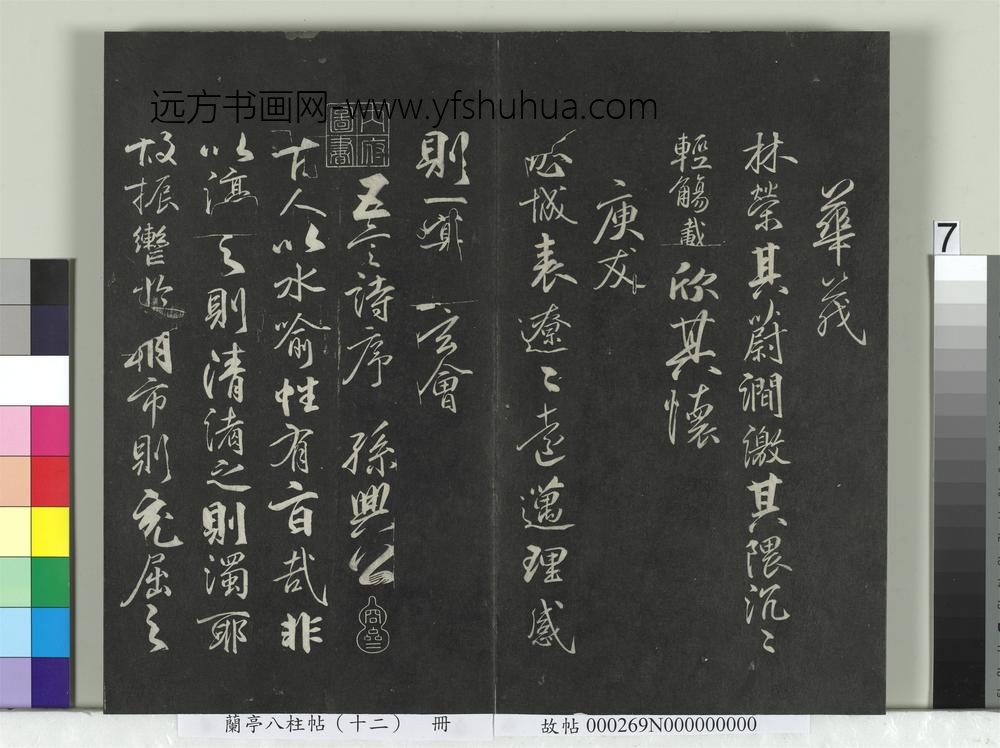 远方书画网-www.yfshuhua.com
華茂
林榮其蔚澗激其隈汎〻
輕觴載欣其懷
庚友
馳心域表遼〻遠邁理感
則一冥然玄會
五言詩序 孫興公
古人以水喻性有旨哉非
以渟之則清淆之則濁耶
故振轡於朝市則充屈之
7
蘭亭八柱帖(十二) 冊
故帖 000269N000000000